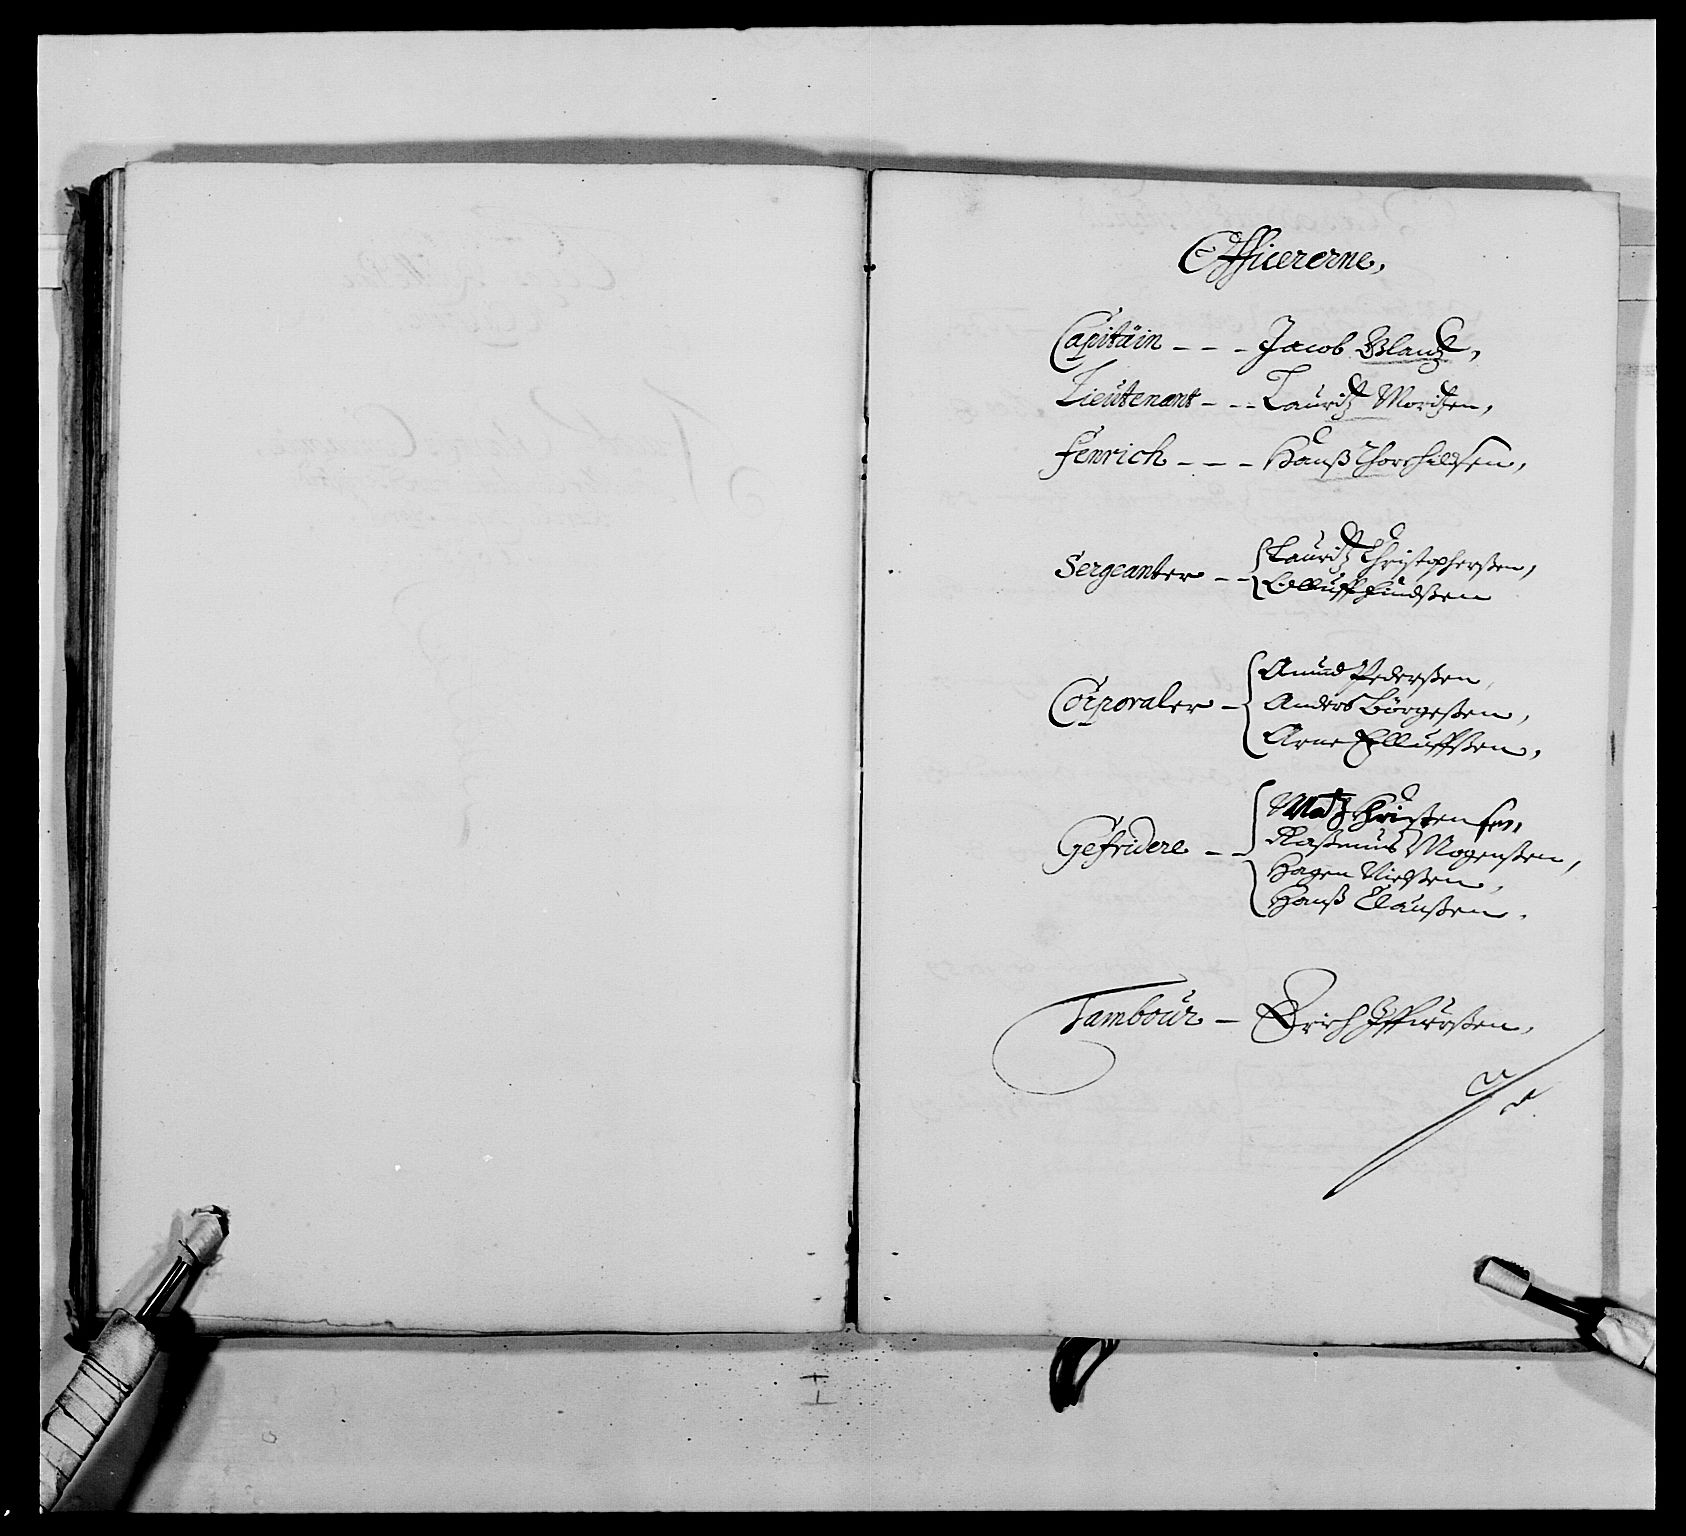 Officererne,
Capitäin - - - Jacob Blantz,
Lieutenant - - - Lauritz Moritzen,
Fenrich - - - Hanß Thorchildsen,
Sergeanter - - Lauritz Christopherßen,
Olluff
Corporaler - Amund Pederßen,
Anders Börgeßen,
Arne Elluffßen,
Gefridere - - Matz Christensen,
Raßmus Mogenßen,
Hagen Nielßen,
Hanß Claußen.
Tambour - Erich